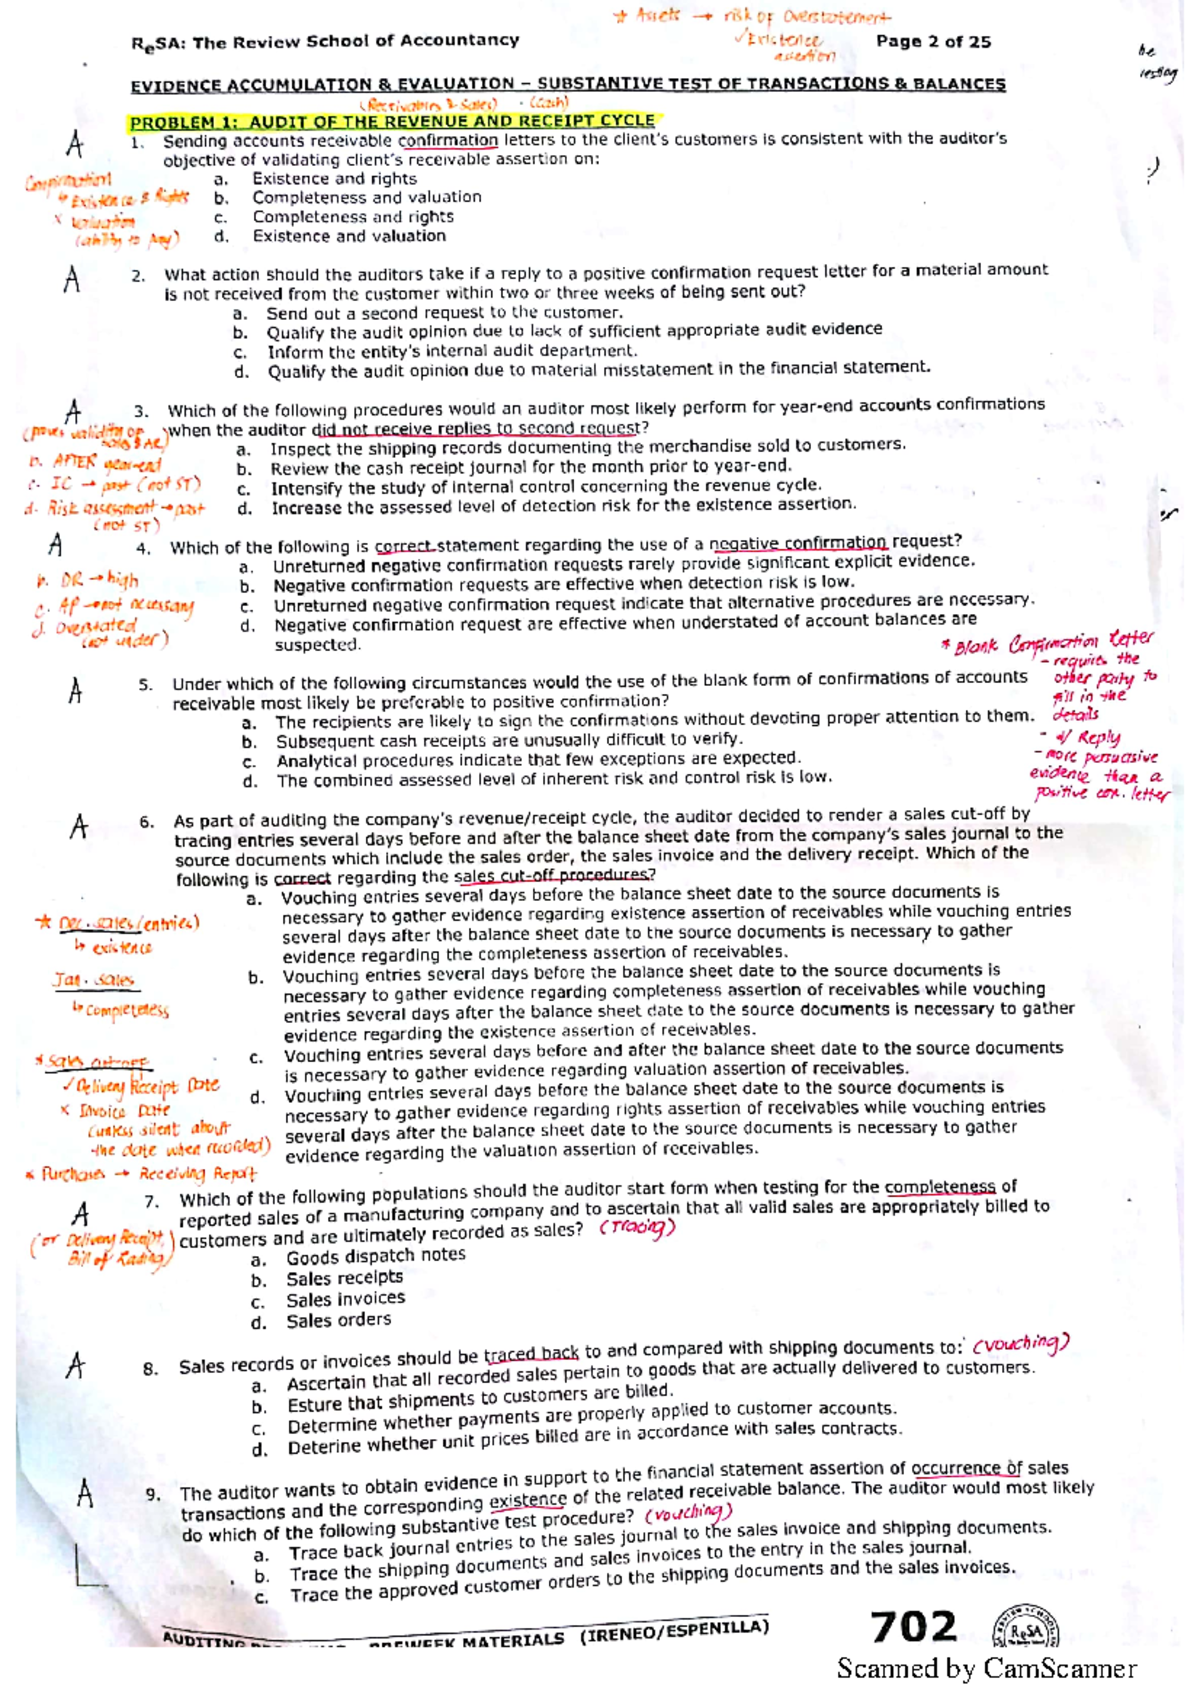 * Assets → risk of Overstatement
ReSA: The Review School of Accountancy
✓Existence
assertion
Page 2 of 25
be
testing
EVIDENCE ACCUMULATION & EVALUATION – SUBSTANTIVE TEST OF TRANSACTIONS & BALANCES
(Receivables & Sales) · (Cash)
PROBLEM 1: AUDIT OF THE REVENUE AND RECEIPT CYCLE
A
1. Sending accounts receivable confirmation letters to the client's customers is consistent with the auditor's
objective of validating client's receivable assertion on:
a. Existence and rights
b. Completeness and valuation
c. Completeness and rights
d. Existence and valuation
Confirmation
↳ Existence & Rights
x Valuation
(ability to pay)
A
2. What action should the auditors take if a reply to a positive confirmation request letter for a material amount
is not received from the customer within two or three weeks of being sent out?
a. Send out a second request to the customer.
b. Qualify the audit opinion due to lack of sufficient appropriate audit evidence
c. Inform the entity's internal audit department.
d. Qualify the audit opinion due to material misstatement in the financial statement.
A
3. Which of the following procedures would an auditor most likely perform for year-end accounts confirmations
when the auditor did not receive replies to second request?
a. Inspect the shipping records documenting the merchandise sold to customers.
b. Review the cash receipt journal for the month prior to year-end.
c. Intensify the study of internal control concerning the revenue cycle.
d. Increase the assessed level of detection risk for the existence assertion.
(proves validity of
sales & AR)
b. AFTER year-end
c. IC → past (not ST)
d. Risk assessment → past
(not ST)
A
4. Which of the following is correct statement regarding the use of a negative confirmation request?
a. Unreturned negative confirmation requests rarely provide significant explicit evidence.
b. Negative confirmation requests are effective when detection risk is low.
c. Unreturned negative confirmation request indicate that alternative procedures are necessary.
d. Negative confirmation request are effective when understated of account balances are
suspected.
b. DR → high
c. AP → not necessary
d. Overstated
(not under)
* Blank Confirmation Letter
- requires the
other party to
fill in the
details
- w/ Reply
- more persuasive
evidence than a
positive con. letter
A
5. Under which of the following circumstances would the use of the blank form of confirmations of accounts
receivable most likely be preferable to positive confirmation?
a. The recipients are likely to sign the confirmations without devoting proper attention to them.
b. Subsequent cash receipts are unusually difficult to verify.
c. Analytical procedures indicate that few exceptions are expected.
d. The combined assessed level of inherent risk and control risk is low.
A
6. As part of auditing the company's revenue/receipt cycle, the auditor decided to render a sales cut-off by
tracing entries several days before and after the balance sheet date from the company's sales journal to the
source documents which include the sales order, the sales invoice and the delivery receipt. Which of the
following is correct regarding the sales cut-off procedures?
a. Vouching entries several days before the balance sheet date to the source documents is
necessary to gather evidence regarding existence assertion of receivables while vouching entries
several days after the balance sheet date to the source documents is necessary to gather
evidence regarding the completeness assertion of receivables.
b. Vouching entries several days before the balance sheet date to the source documents is
necessary to gather evidence regarding completeness assertion of receivables while vouching
entries several days after the balance sheet date to the source documents is necessary to gather
evidence regarding the existence assertion of receivables.
c. Vouching entries several days before and after the balance sheet date to the source documents
is necessary to gather evidence regarding valuation assertion of receivables.
d. Vouching entries several days before the balance sheet date to the source documents is
necessary to gather evidence regarding rights assertion of receivables while vouching entries
several days after the balance sheet date to the source documents is necessary to gather
evidence regarding the valuation assertion of receivables.
* Dec. sales (entries)
↳ existence
Jan. sales
↳ completeness
* Sales cut-off
✓ Delivery Receipt Date
x Invoice Date
(unless silent about
the date when recorded)
* Purchases → Receiving Report
A
7. Which of the following populations should the auditor start form when testing for the completeness of
reported sales of a manufacturing company and to ascertain that all valid sales are appropriately billed to
customers and are ultimately recorded as sales? (Tracing)
a. Goods dispatch notes
b. Sales receipts
c. Sales invoices
d. Sales orders
(or Delivery Receipt,
Bill of Lading)
A
8. Sales records or invoices should be traced back to and compared with shipping documents to: (vouching)
a. Ascertain that all recorded sales pertain to goods that are actually delivered to customers.
b. Esture that shipments to customers are billed.
c. Determine whether payments are properly applied to customer accounts.
d. Deterine whether unit prices billed are in accordance with sales contracts.
A
9. The auditor wants to obtain evidence in support to the financial statement assertion of occurrence of sales
transactions and the corresponding existence of the related receivable balance. The auditor would most likely
do which of the following substantive test procedure? (vouching)
a. Trace back journal entries to the sales journal to the sales invoice and shipping documents.
b. Trace the shipping documents and sales invoices to the entry in the sales journal.
c. Trace the approved customer orders to the shipping documents and the sales invoices.
AUDITING PREWEEK MATERIALS (IRENEO/ESPENILLA)
702
ReSA
Scanned by CamScanner